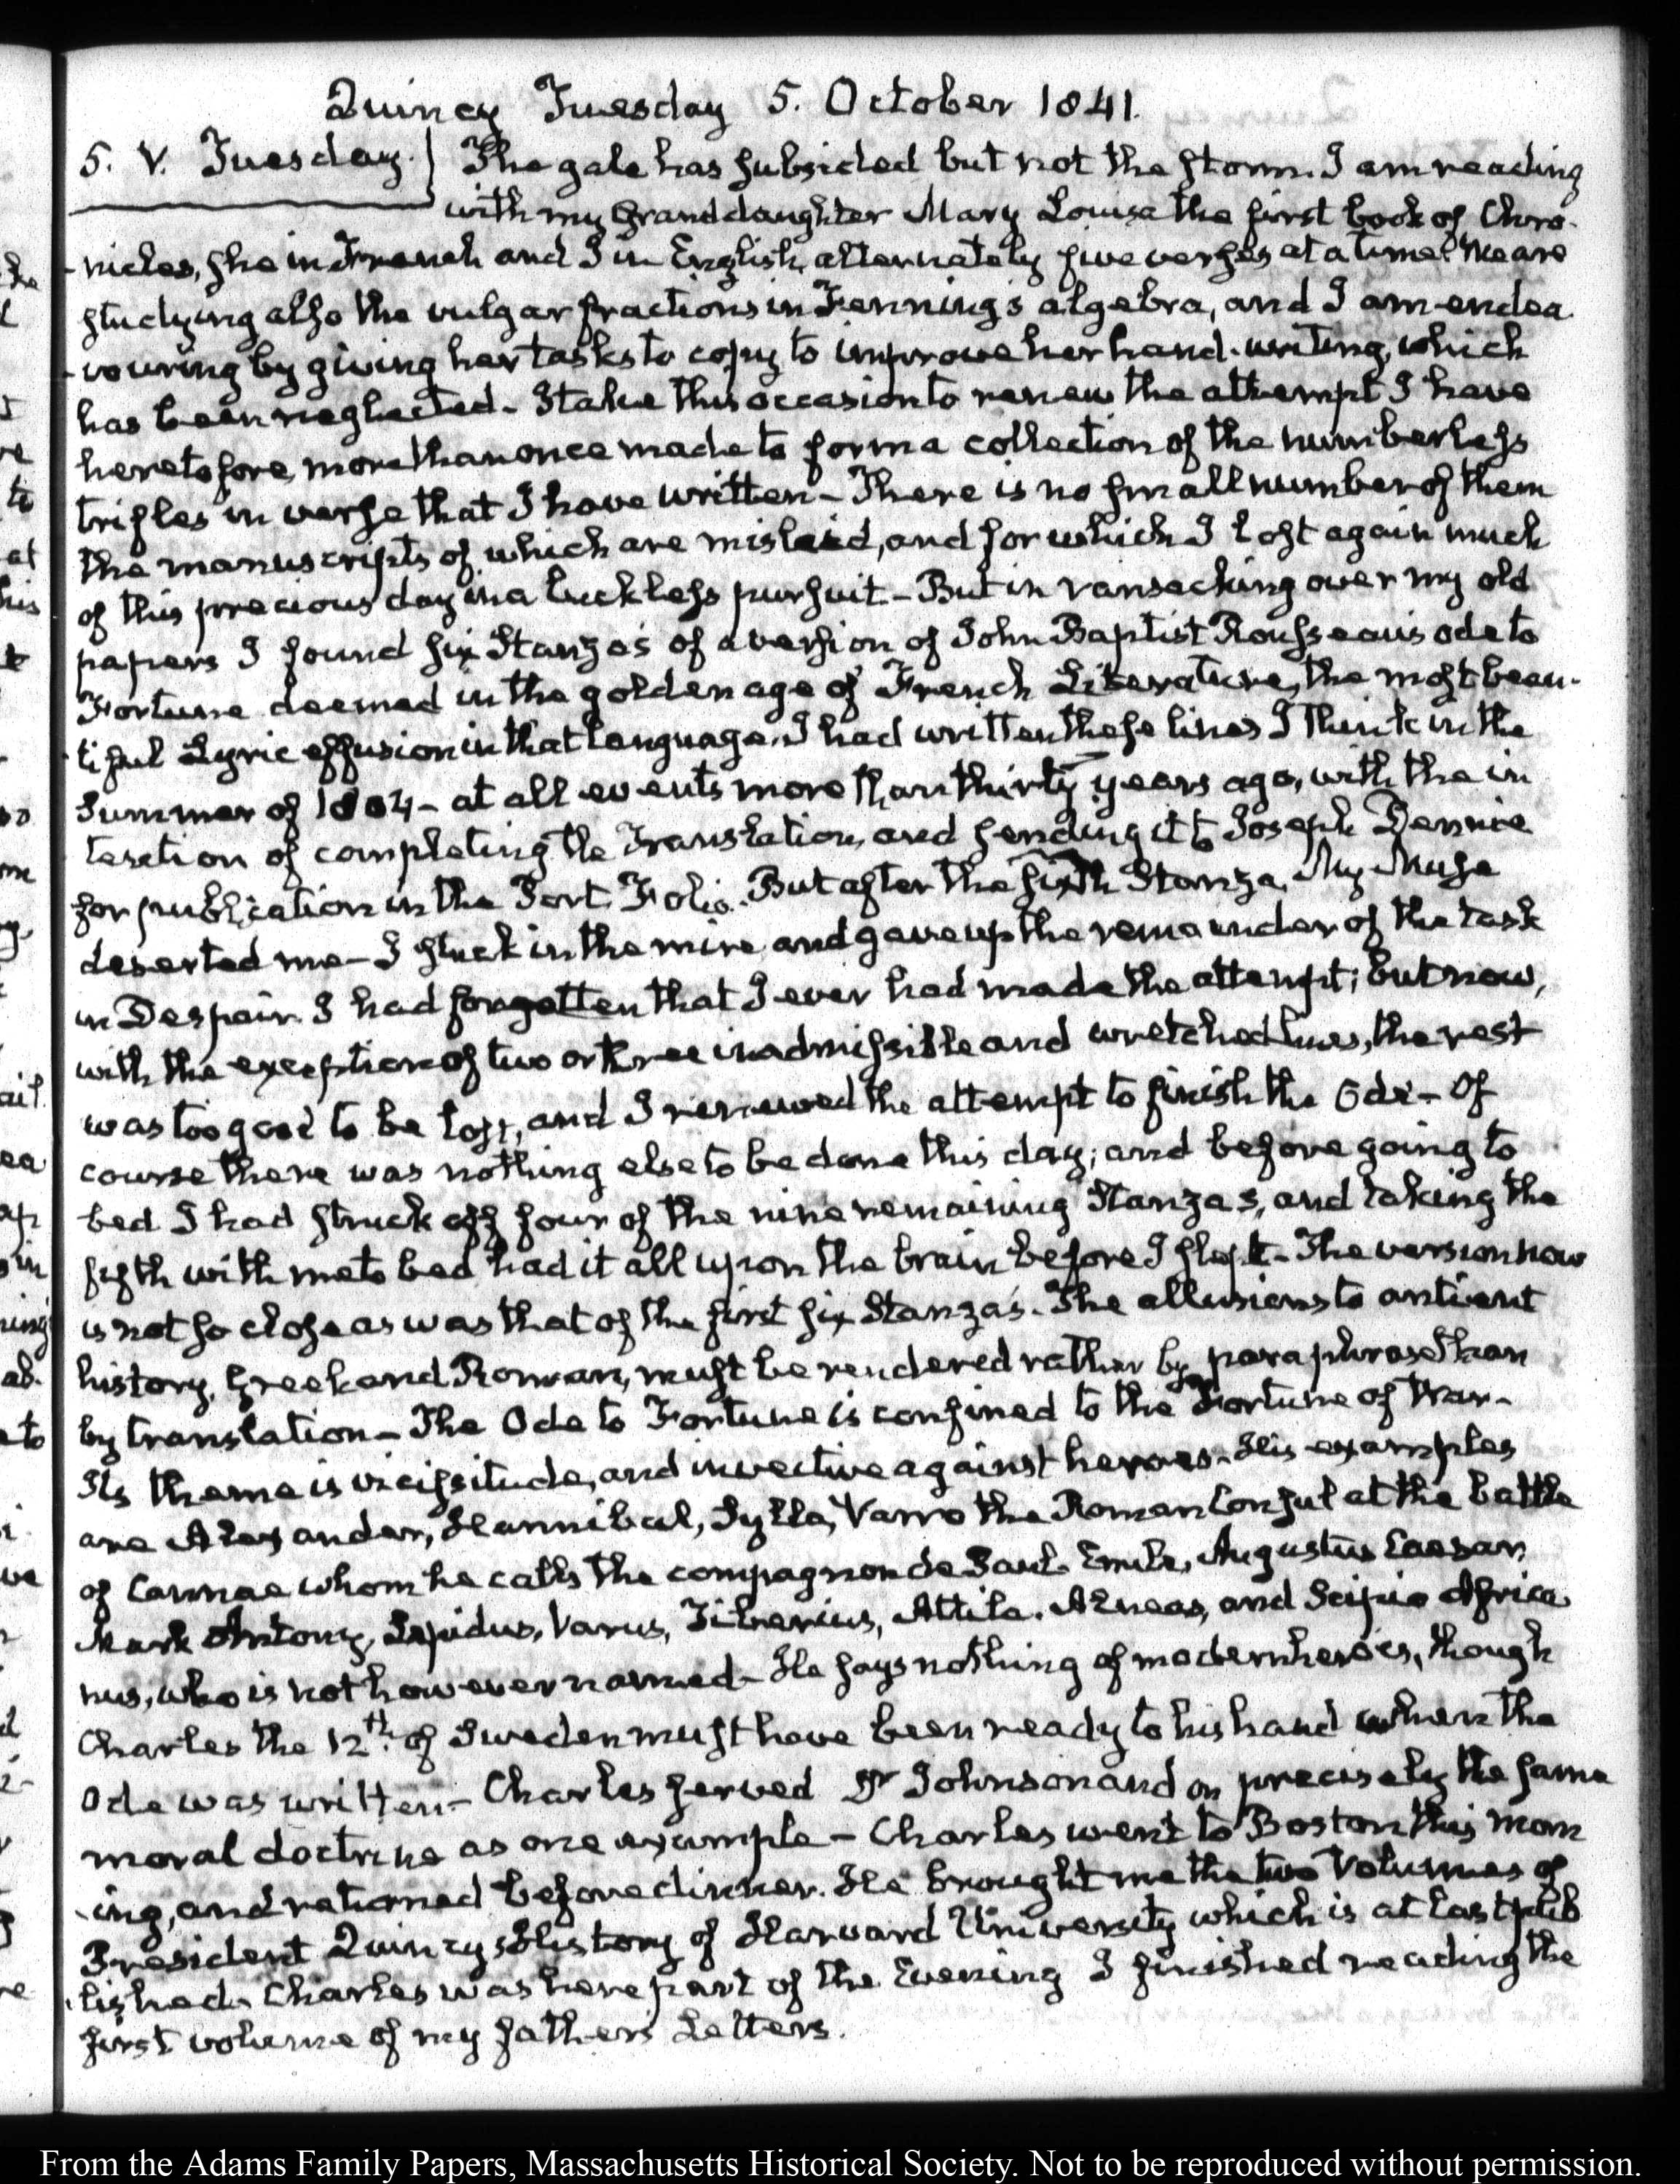 Quincy Tuesday 5. October 1841.
5. V. Tuesday. } The gale has subsided but not the storm. I am reading
with my Granddaughter Mary Louisa the first book of Chro-
-nicles, she in French and I in English, alternately five verses at a time. We are
studying also the vulgar fractions in Fenning's algebra, and I am endea
-vouring by giving her tasks to copy to improve her hand-writing, which
has been neglected - I take this occasion to renew the attempt I have
heretofore, more than once made to form a collection of the numberless
trifles in verse that I have written - There is no small number of them
the manuscripts of which are mislaid, and for which I lost again much
of this precious day in a luckless pursuit - But in ransacking over my old
papers I found six Stanzas of a version of John Baptist Rousseau's ode to
Fortune deemed in the golden age of French Literature, the most beau-
-tiful Lyric effusion in that language. I had written these lines I think in the
Summer of 1804 - at all events more than thirty years ago, with the in
tention of completing the Translation, and sending it to Joseph Dennie
for publication in the Port Folio. But after the sixth Stanza, My Muse
deserted me - I stuck in the mire and gave up the remainder of the task
in Despair. I had forgotten that I ever had made the attempt; but now,
with the exception of two or three inadmissible and wretched lines, the rest
was too good to be lost, and I renewed the attempt to finish the Ode - Of
course there was nothing else to be done this day; and before going to
bed I had struck off four of the nine remaining Stanzas, and taking the
fifth with me to bed had it all upon the brain before I slept - The version now
is not so close as was that of the first six Stanzas. The allusions to antient
history, Greek and Roman, must be rendered rather by paraphrase than
by translation - The Ode to Fortune is confined to the Fortune of War -
Its theme is vicissitude, and invective against heroes - His examples
are Alexander, Hannibal, Sylla, Varro the Roman Consul at the battle
of Cannae whom he calls the compagnon de Paul Emile, Augustus Caesar,
Mark Antony, Lepidus, Varus, Tiberius, Attila. AEneas, and Scipio Africa
nus, who is not however named - He says nothing of modern heroes, though
Charles the 12th. of Sweden must have been ready to his hand when the
Ode was written - Charles served Dr Johnson and on precisely the same
moral doctrine as one example - Charles went to Boston this morn
-ing, and returned before dinner. He brought me the two Volumes of
President Quincy's History of Harvard University which is at last pub
lished. Charles was here part of the Evening I finished reading the
first volume of my father's Letters.
From the Adams Family Papers, Massachusetts Historical Society. Not to be reproduced without permission.